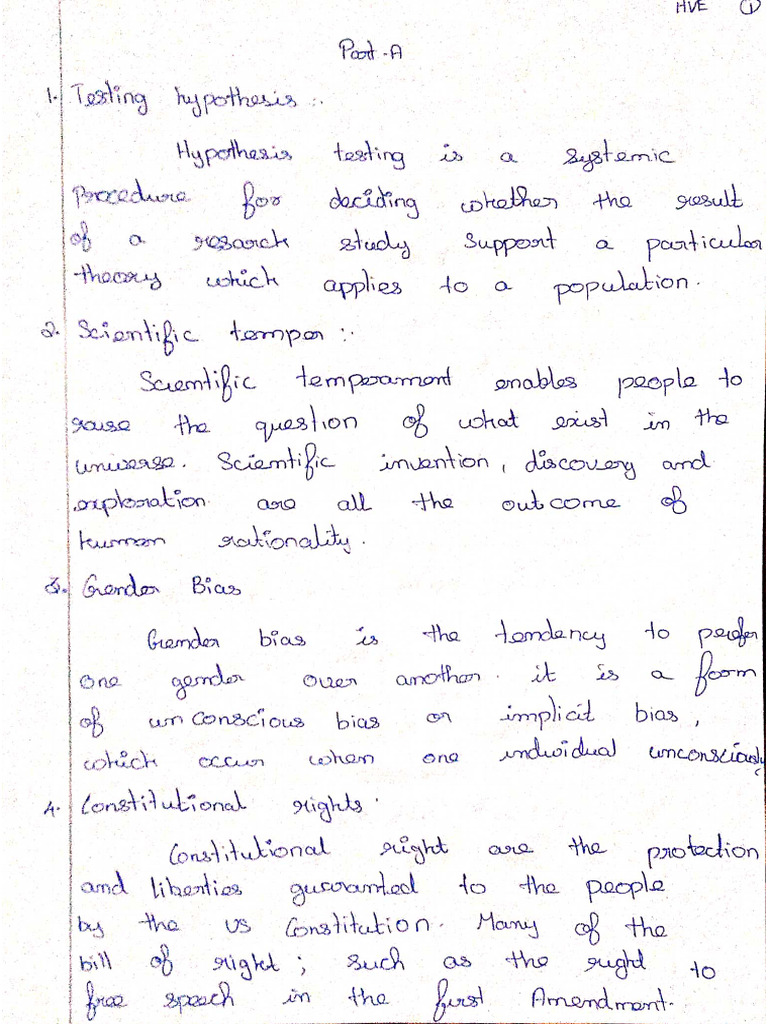 HVE 1
Part-A
1. Testing hypothesis :.
Hypothesis testing is a systemic
Procedure for deciding whether the result
of a resarch study support a particular
theory which applies to a population.
2. Scientific temper :.
Scientific temperament enables people to
rause the question of what exist in the
universe. Scientific invention, discovery and
exploration are all the outcome of
human rationality.
3. Gender Bias
Gender bias is the tendency to prefer
one gender over another. it is a form
of unconscious bias or implicit bias,
which occur when one individual unconsciously
4. Constitutional rights.
Constitutional right are the protection
and liberties guaranted to the people
by the US Constitution. Many of the
bill of right; such as the right to
free speech in the first Amendment.